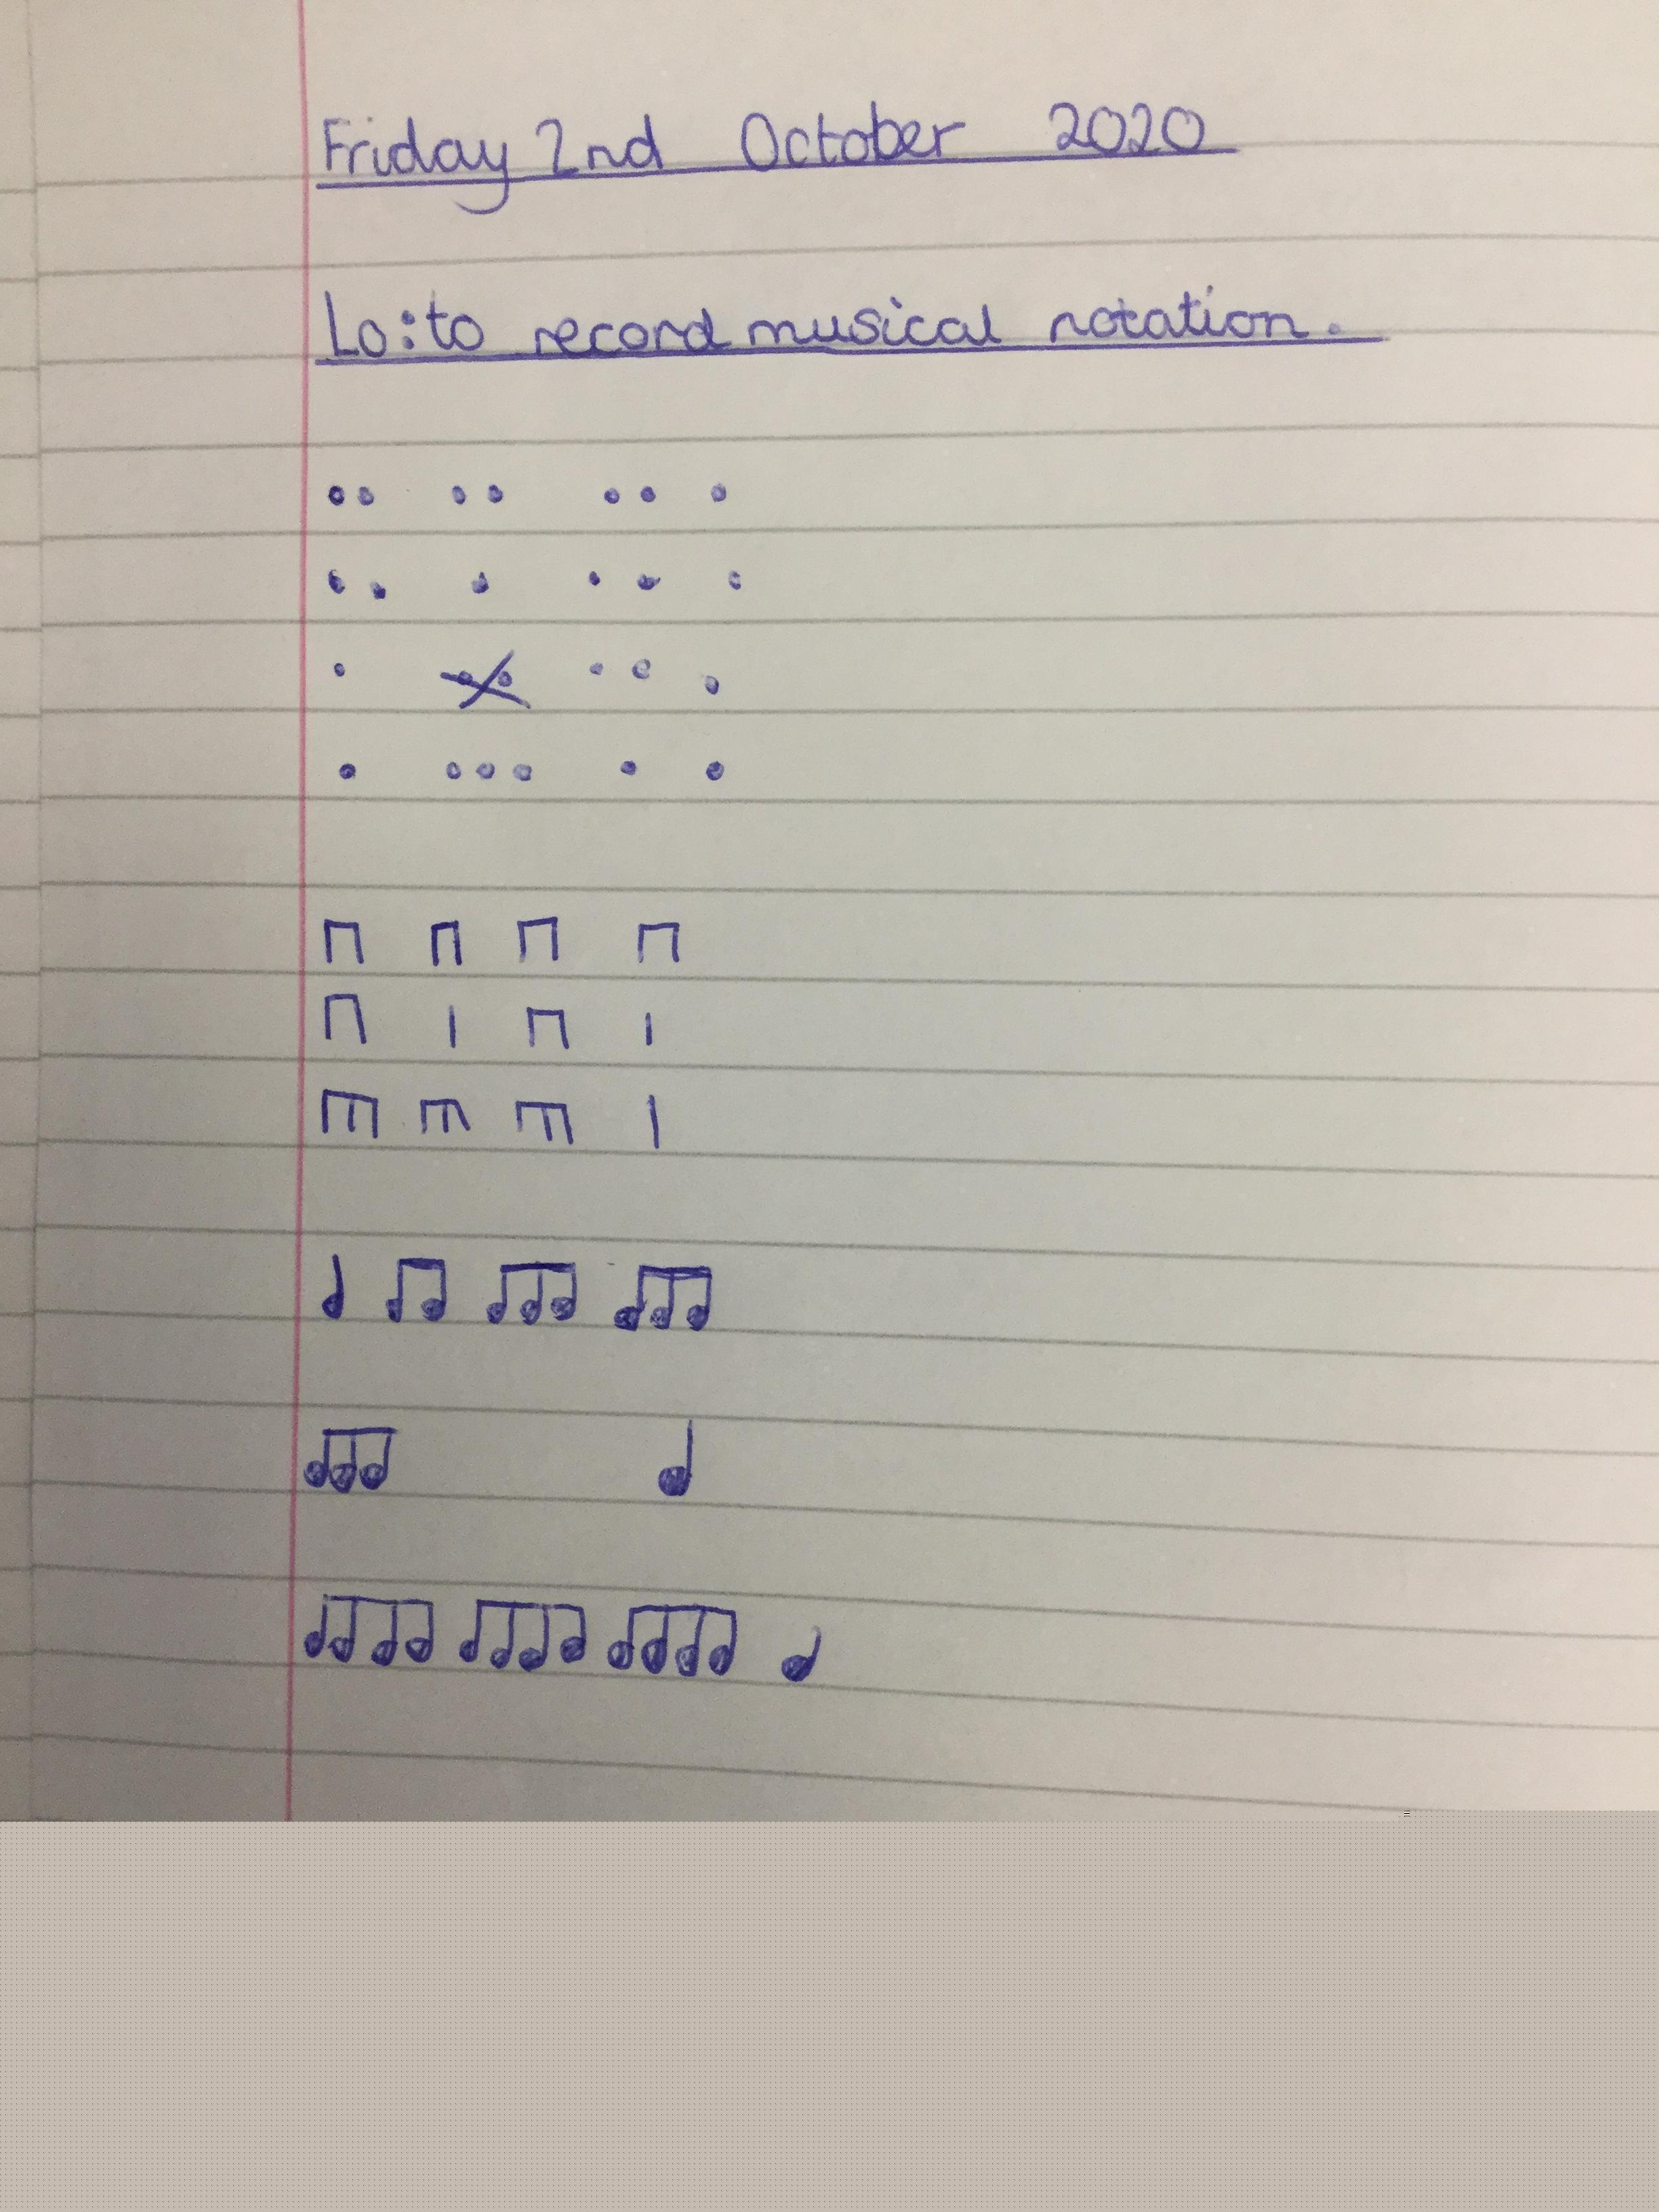 Friday 2nd October 2020
Lo: to record musical notation.